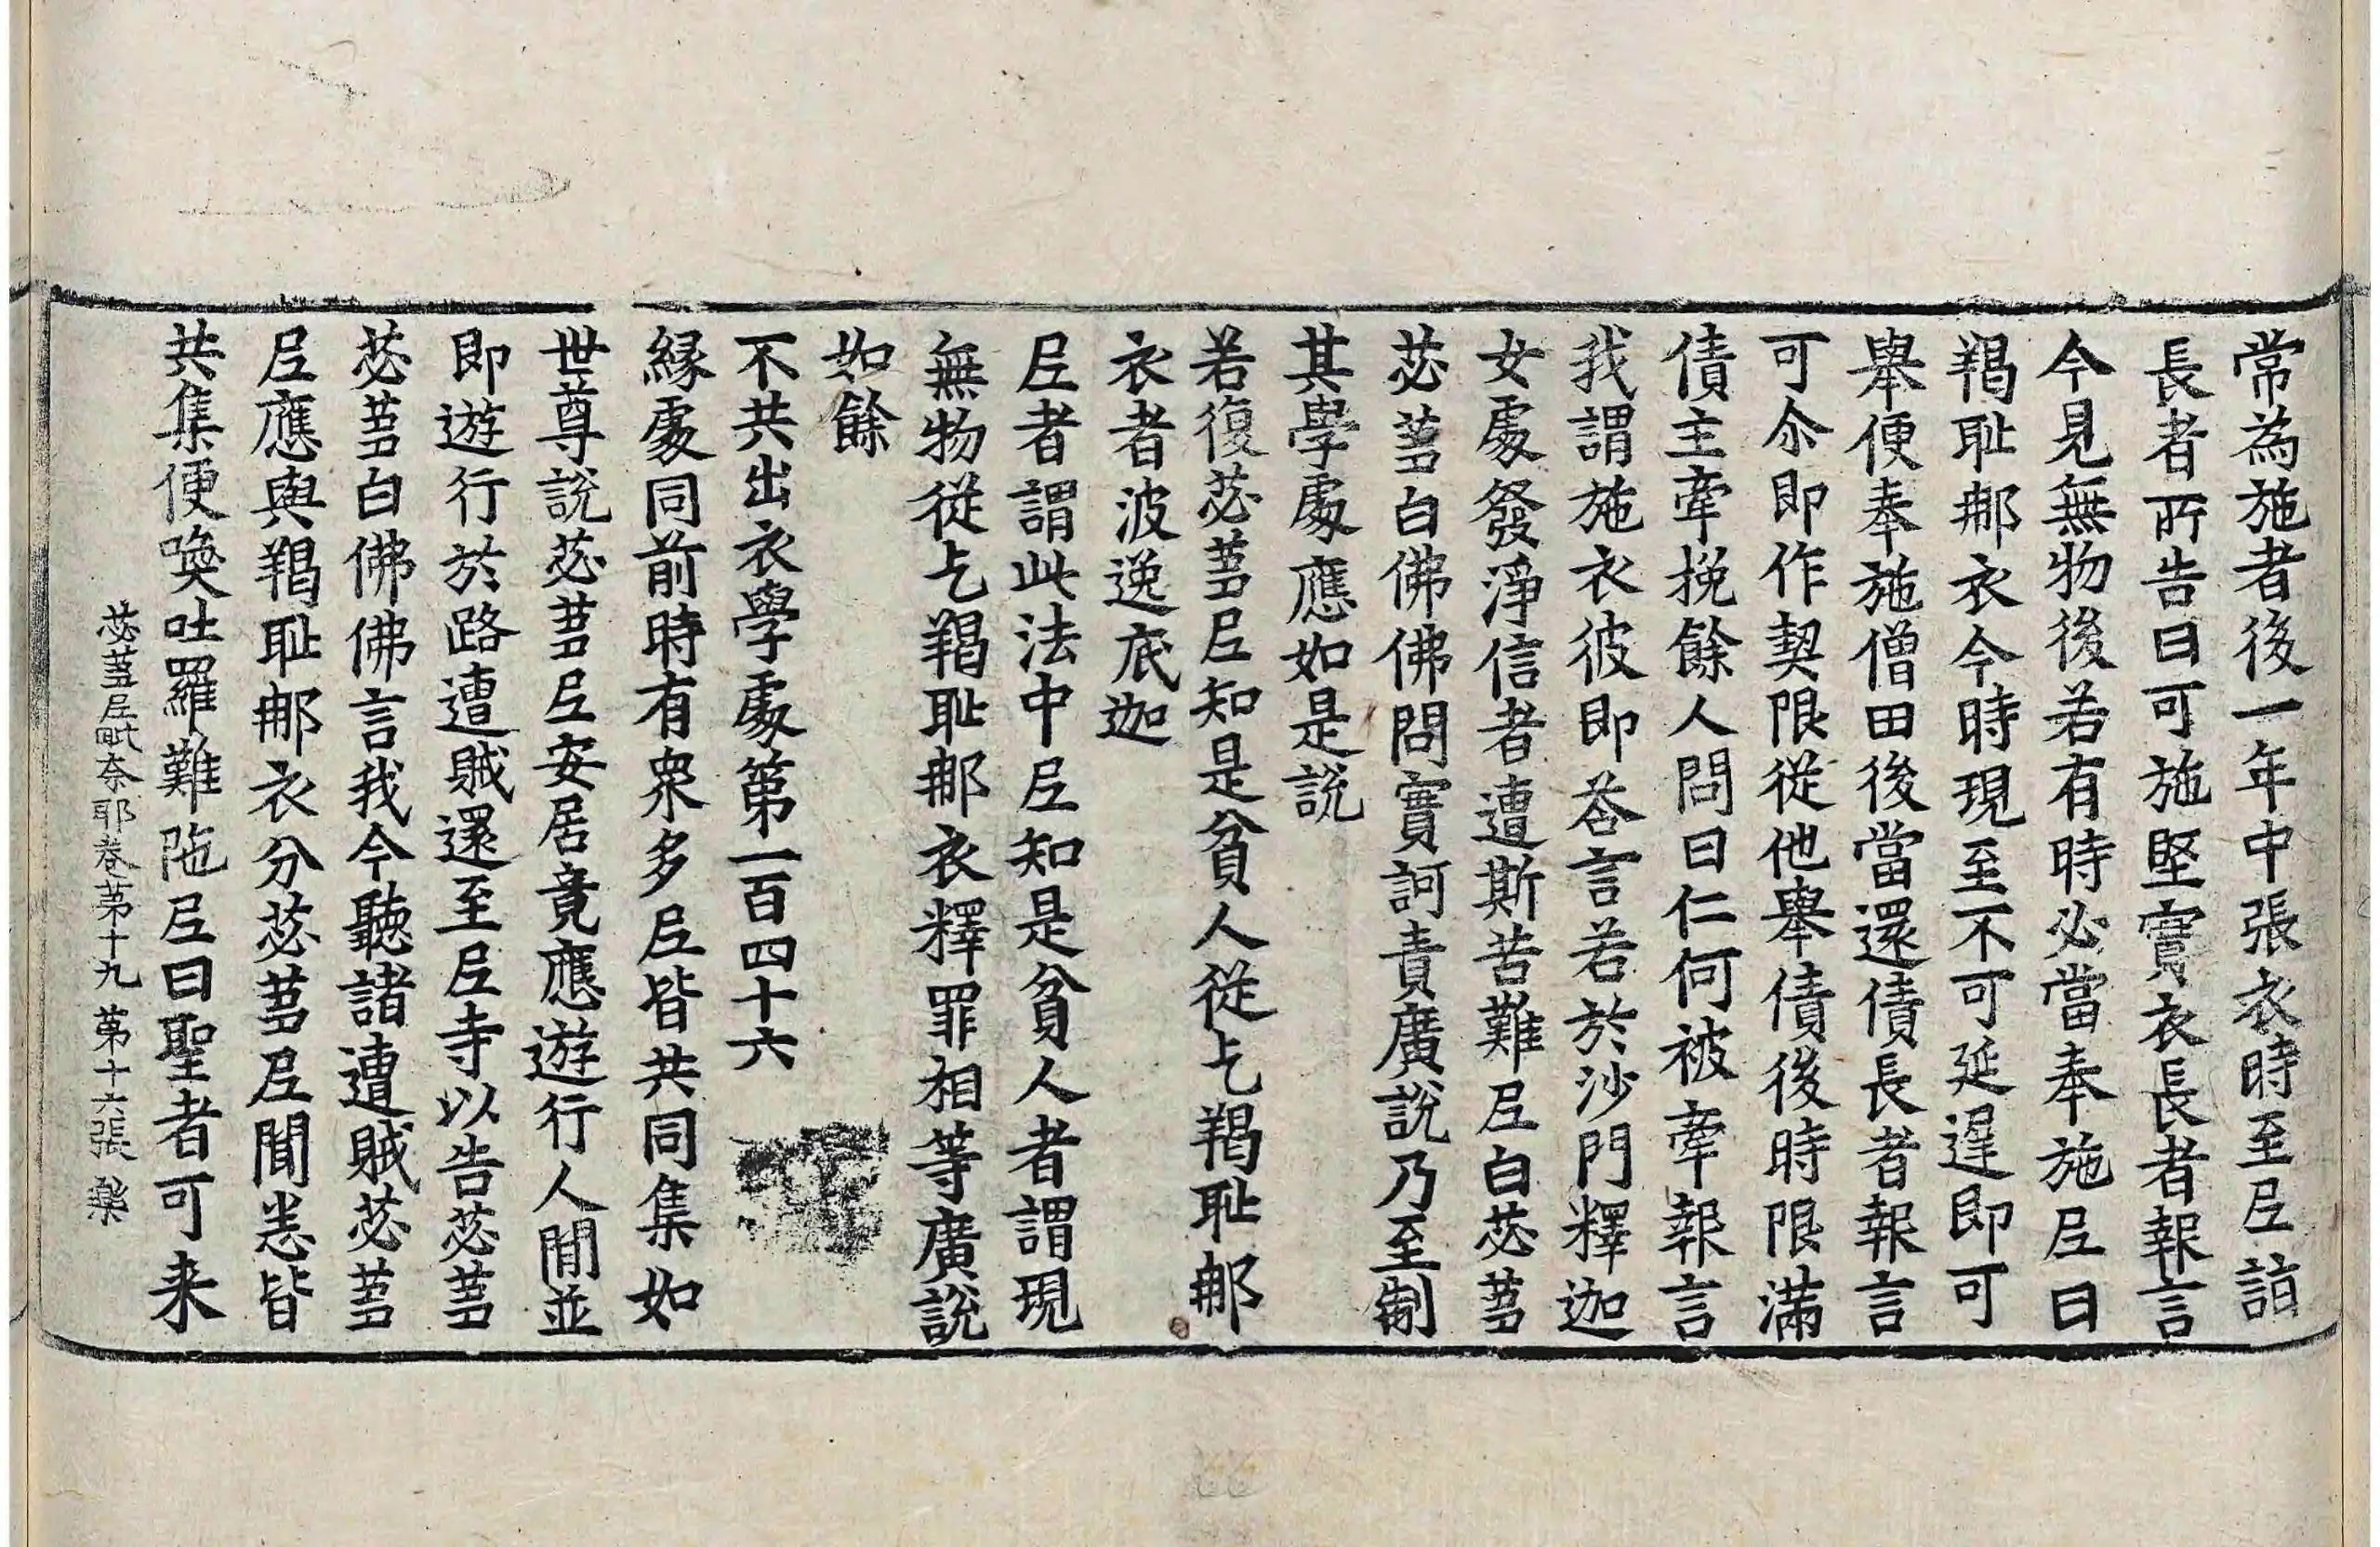 常為施者後一年中張衣時至𡰱詣
長者所告曰可施堅實衣長者報言
今見無物後若有時必當奉施𡰱曰
羯恥那衣今時現至不可延遲即可
舉便奉施僧田後當還債長者報言
可尒即作契限從他舉債後時限滿
債主牽挽餘人問曰仁何被牽報言
我謂施衣彼即荅言若於沙門釋迦
女處發淨信者遭斯苦難𡰱白苾蒭
苾蒭白佛佛問實訶責廣說乃至制
其學處應如是說
若復苾蒭𡰱知是貧人從乞羯恥那
衣者波逸底迦
𡰱者謂此法中𡰱知是貧人者謂現
無物從乞羯恥那衣釋罪相等廣說
如餘
不共出衣學處第一百四十六
緣處同前時有衆多𡰱皆共同集如
世尊說苾蒭𡰱安居竟應遊行人間並
即遊行於路遭賊還至𡰱寺以告苾蒭
苾蒭白佛佛言我今聽諸遭賊苾蒭
𡰱應與羯恥那衣分苾蒭𡰱聞悉皆
共集便喚吐羅難陁𡰱曰聖者可来
苾蒭𡰱毗奈耶卷第十九 第十六張 樂